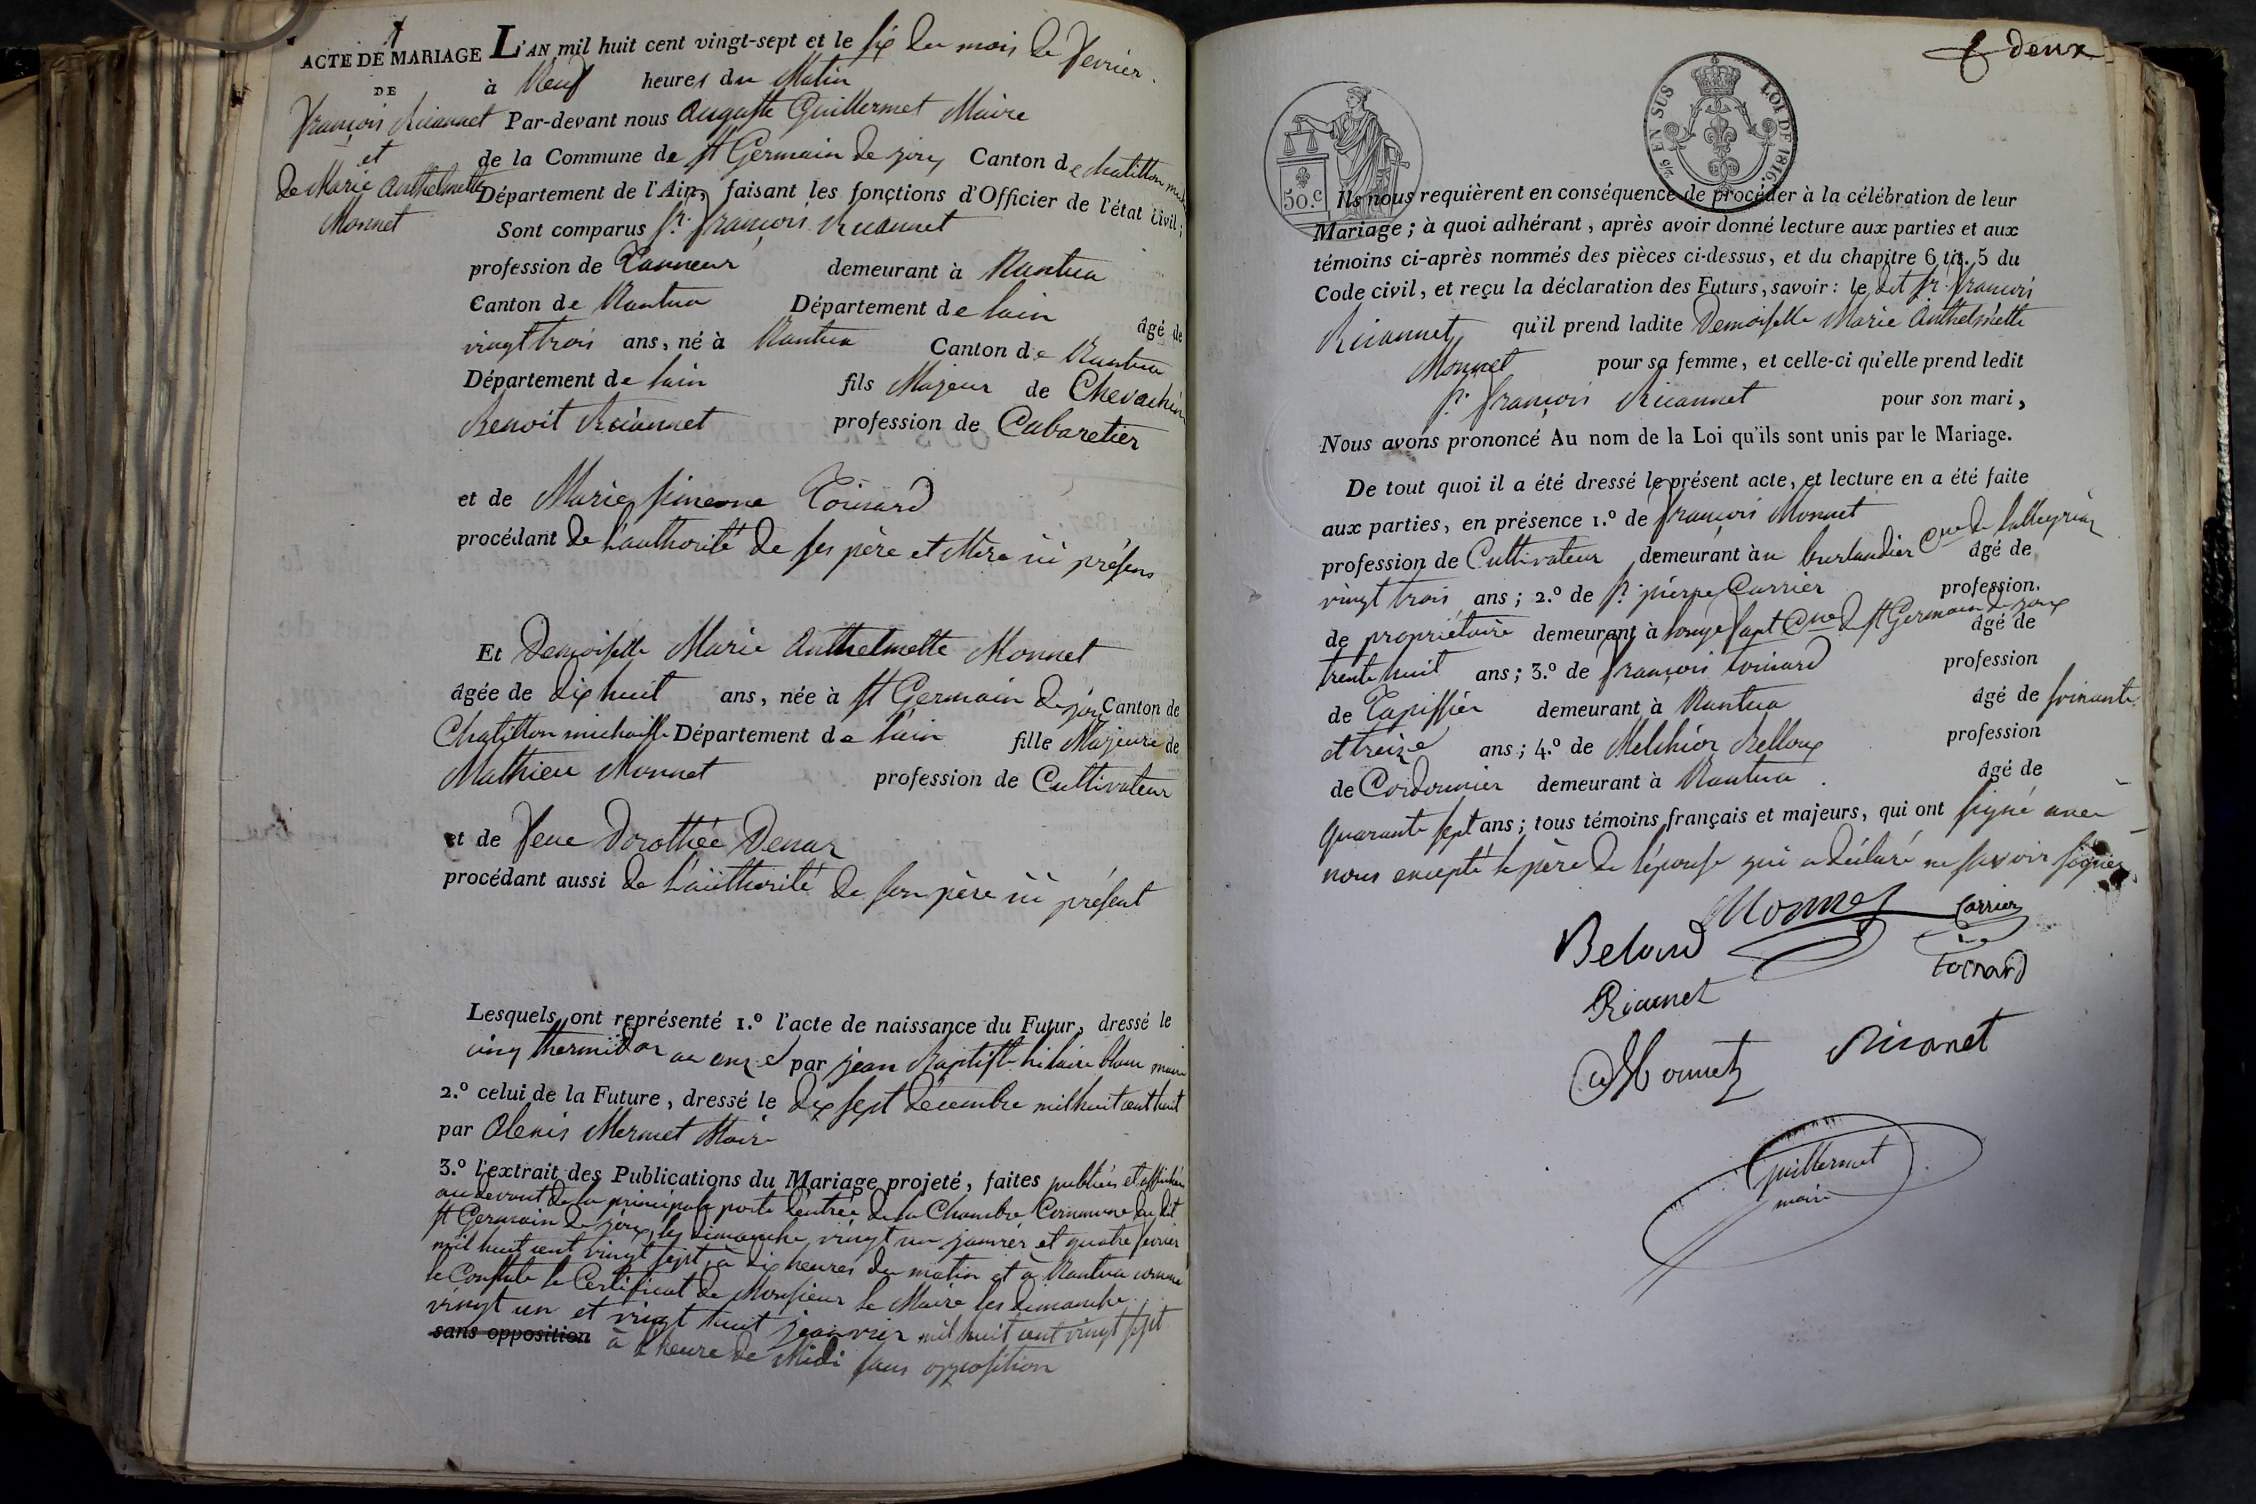 1
ACTE DE MARIAGE L'AN mil huit cent vingt-sept et le six du mois de fevrier.
DE à Neuf heures du Matin
françois Ricannet Par-devant nous Auguste Guillermet Maire
et de la Commune de St Germain de joux Canton de chatillon
de Marie Anthelmette Département de l'Ain, faisant les fonctions d'Officier de l'état civil;
Monnet Sont comparus Sr. françois Ricannet
profession de Tanneur demeurant à Nantua
Canton de Nantua Département de lain âgé de
vingt trois ans, né à Nantua Canton de Nantua
Département de lain fils Majeur de
Benoit Ricannet profession de Cabaretier
et de Marie simeone Toinard
procédant de L'authorité de ses père et Mère ici présens
Et Demoiselle Marie Anthelmette Monnet
âgée de dix huit ans, née à St Germain de joux Canton de
Chatillon michaille Département de L'ain fille Majeure de
Mathieu Monnet profession de Cultivateur
et de feue Dorothée
procédant aussi de L'aüthorité de son père ici présent
Lesquels ont représenté 1.º l'acte de naissance du Futur, dressé le
cinq thermidor an onze par jean Baptiste hilaire blanc maire
2.º celui de la Future, dressé le dix sept décembre mil huit cent huit
par Alexis Mermet Maire
3.º l'extrait des Publications du Mariage projeté, faites publiées et affichées
au devant de la principale porte d'entrée de la Chambre Commune du dit
St Germain de joux, les dimanche vingt un janvier et quatre fevrier
mil huit cent vingt sept à dix heures du matin et à Nantua comme
le Constate le Certificat de Monsieur le Maire les dimanche
vingt un et vingt huit janvier mil huit cent vingt sept
sans opposition à l'heure de Midi sans opposition
deux
EN SUS LOI DE 1816.
50.c
Ils nous requièrent en conséquence de procéder à la célébration de leur
Mariage; à quoi adhérant, après avoir donné lecture aux parties et aux
témoins ci-après nommés des pièces ci-dessus, et du chapitre 6 tit. 5 du
Code civil, et reçu la déclaration des Futurs, savoir: le dit Sr. françois
Ricannet qu'il prend ladite Demoiselle Marie Anthelmette
Monnet pour sa femme, et celle-ci qu'elle prend ledit
Sr. françois Ricannet pour son mari,
Nous avons prononcé Au nom de la Loi qu'ils sont unis par le Mariage.
De tout quoi il a été dressé le présent acte, et lecture en a été faite
aux parties, en présence 1.º de françois Monnet
profession de Cultivateur demeurant à Cne de Lalleyriat âgé de
vingt trois ans; 2.º de Sr. pierre Carrier profession
de propriétaire demeurant à Cne de St Germain de joux âgé de
trente huit ans; 3.º de françois toinard profession
de Tapissier demeurant à Nantua âgé de soixante
et treize ans; 4.º de Melchior Belloux profession
de Cordonnier demeurant à Nantua. âgé de
Quarante sept ans; tous témoins français et majeurs, qui ont signé avec
nous excepté le père de l'épouse qui a déclaré ne savoir signer
Monnet Carrier
Toinard
Ricannet
Monnet Ricanet
Guillermet
maire